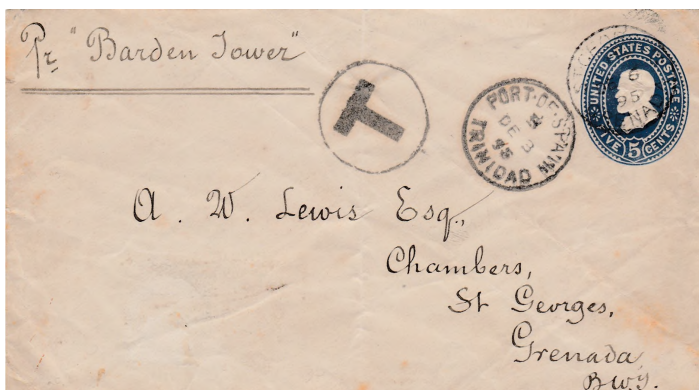 Pr "Barden Tower"
T
PORT-OF-SPAIN
DE 3
95
TRINIDAD
UNITED STATES POSTAGE
FIVE 5 CENTS
A. W. Lewis Esq.,
Chambers,
St Georges,
Grenada
B W I.